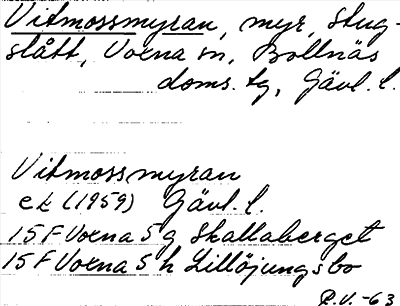 Vitmossmyran, myr, Stug-
slått, Voxna sn, Bollnäs
doms. tg, Gävl. l.
Vitmossmyran
ek (1959) Gävl. l.
15 F Voxna 5 g Skallaberget
15 F Voxna 5 h Lillöjungsbo
R.V. -63